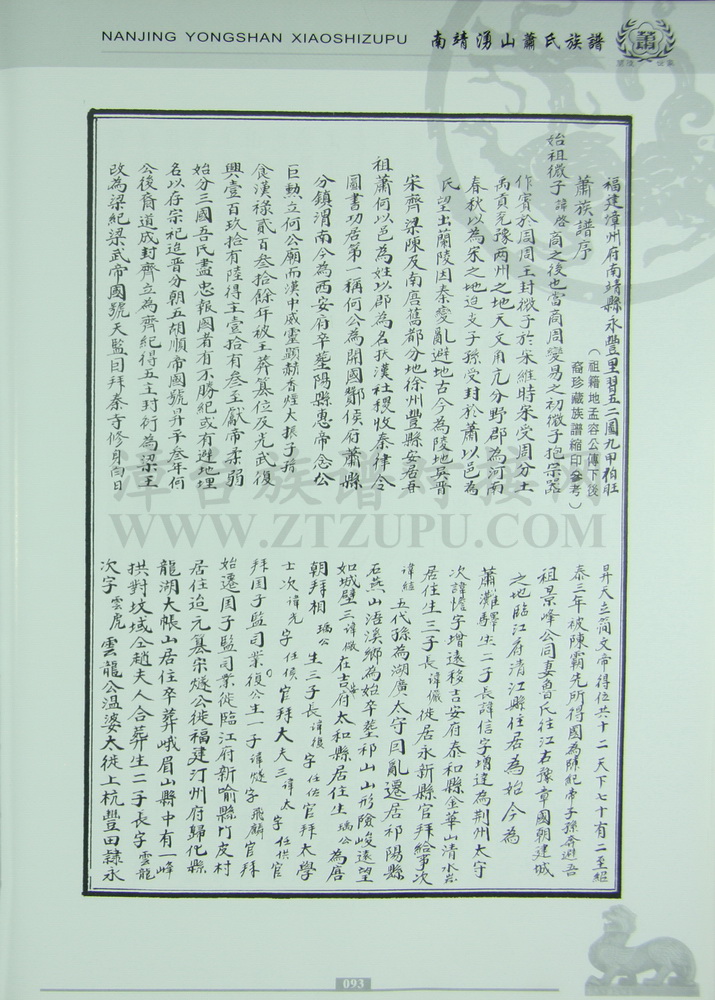 NANJING YONGSHAN XIAOSHIZUPU 南靖湧山蕭氏族譜
福建漳州府南靖縣永豐里習五二圖九甲柏壯
蕭族譜序
(祖籍地孟容公傳下後裔珍藏族譜縮印參考)
始祖微子諱啓商之後也當商周變易之初微子抱祭器
作賓於周周王封微子於宋維時宋受周分土
禹貢兗豫兩州之地天文用亢分野郡為河南
春秋以為宋之地迨支子孫受封於蕭以邑為
氏望出蘭陵因秦變亂避地古今為陵地吳晉
宋齊梁陳及南唐舊都分地徐州豐縣安居吾
祖蕭何以邑為姓以郡為名扶漢社稷收秦律令
圖書功居第一稱何公為開國酇侯府蕭縣
分鎮渭南今為西安府卒塋陽縣惠帝念公
巨勲立何公廟而漢中威靈顯赫香煌大振子孫
食漢祿貳百叁拾餘年被王莽篡位及光武復
興壹百玖拾有陸得主壹拾有叁至獻帝柔弱
始分三國吾氏盡忠報國者有不勝紀或有避地埋
名以存宗祀迨晉分朝五胡順帝國號昇平叁年何
公後裔道成封齊立為齊紀得五主封衍為梁王
改為梁紀梁武帝國號天監囙拜秦寺修身白日
昇天立簡文帝得位共十二天下七十有二至紹
泰三年被陳霸先所得國為陳紀帝子孫奔避吾
祖景峰公同妻魯氏往江右豫章國朝建城
之地臨江府清江縣住居為始今為
蕭灘驛生二子長諱信字增達為荆州太守
次諱憺字增遠移吉安府泰和縣金華山清水岩
居住生三子長諱儼徙居永新縣官拜給事次
諱經五代孫為湖廣太守因亂遷居祁陽縣
石燕山浯溪鄉為始卒塋祁山山形險峻遠望
如城壁三諱微在吉府太和縣居住生瑀公為唐
朝拜相瑀公生三子長諱復字任佐官拜太學
士次諱光字任侯官拜大夫三諱太字任拱官
拜国子監司業復公生一子諱燧字飛麟官拜
始遷国子監司業徙臨江府新喻縣竹皮村
居住迨元篡宗燧公徙福建汀州府歸化縣
龍湖大帳山居住卒葬峨眉山縣中有一峰
拱對坟域仝趙夫人合葬生二子長字雲龍
次字雲虎雲龍公温婆太徙上杭豐田隸永
漳台族譜對接網
WWW.ZTZUPU.COM
093